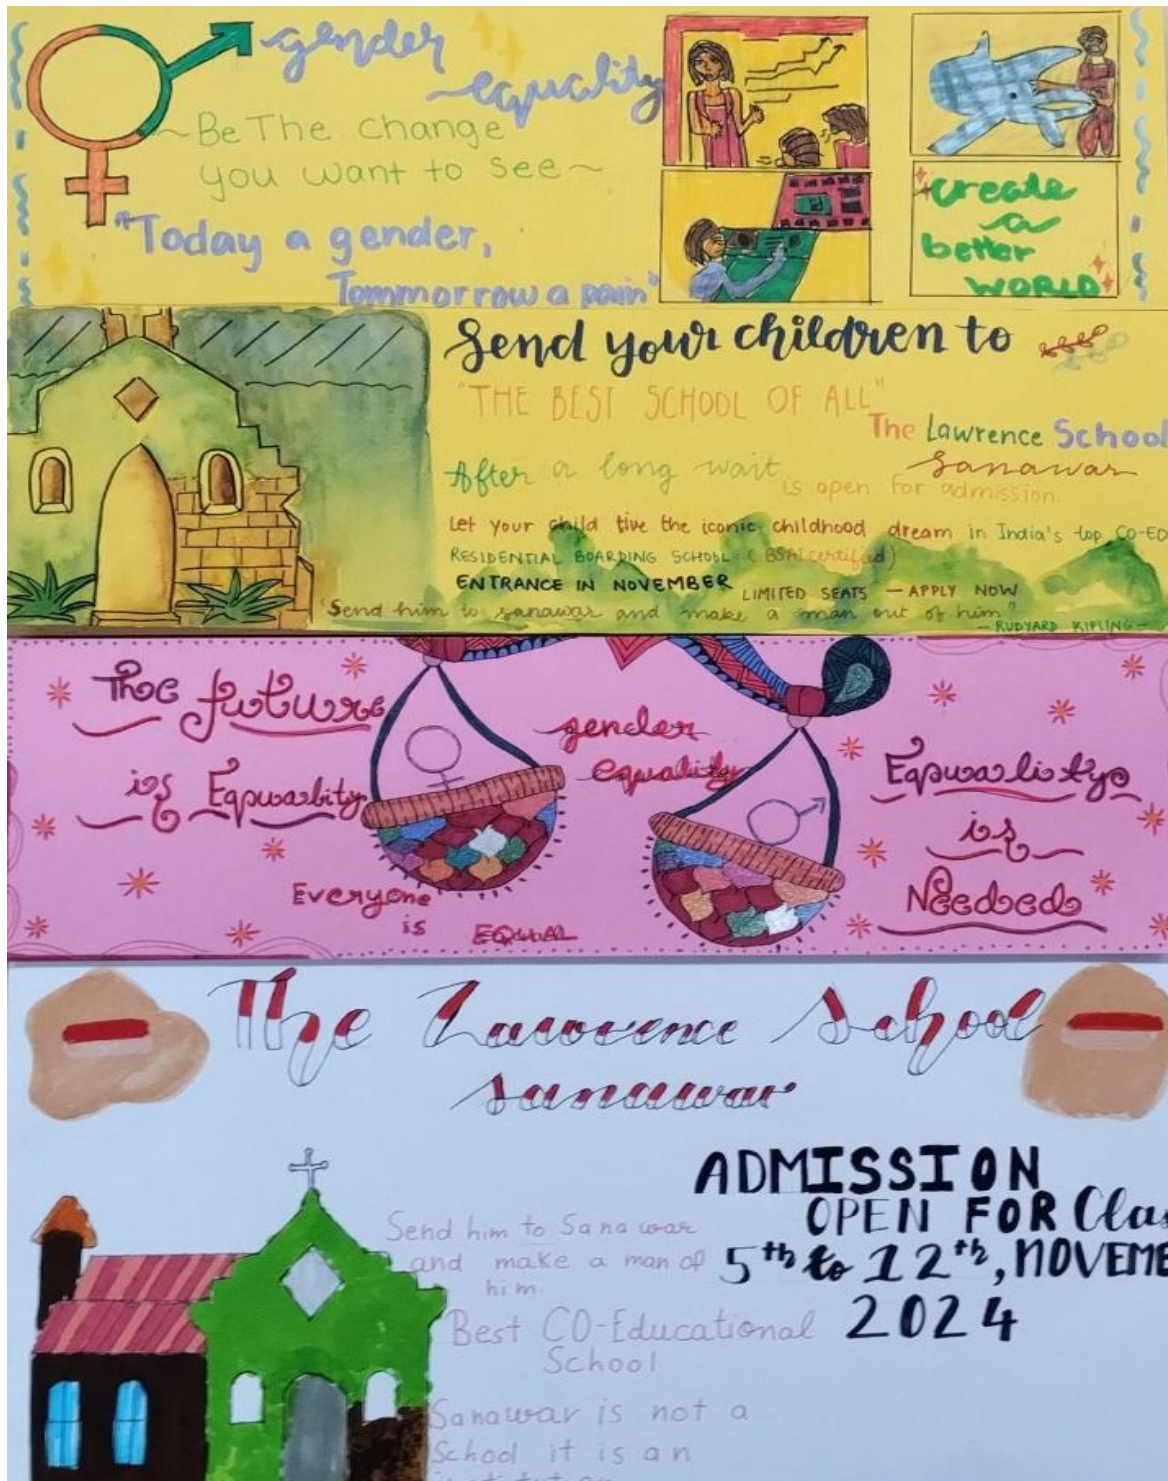 gender
equality
~Be The change
you want to see~
"Today a gender,
Tommorrow a pain"
create
a
better
WORLD
Send your children to
"THE BEST SCHOOL OF ALL"
The Lawrence School
Sanawar
After a long wait
is open for admission.
Let your child live the iconic childhood dream in India's top CO-ED
RESIDENTIAL BOARDING SCHOOL (BSAI certified)
ENTRANCE IN NOVEMBER LIMITED SEATS — APPLY NOW
"Send him to sanawar and make a man out of him"
- RUDYARD KIPLING -
The future
is Equality
gender
equality
Everyone
is EQUAL
Equality
is
Needed
The Lawrence School
Sanawar
ADMISSION
OPEN FOR Clas
5th to 12th, NOVEME
2024
Send him to Sanawar
and make a man of
him.
Best CO-Educational
School
Sanawar is not a
School it is an